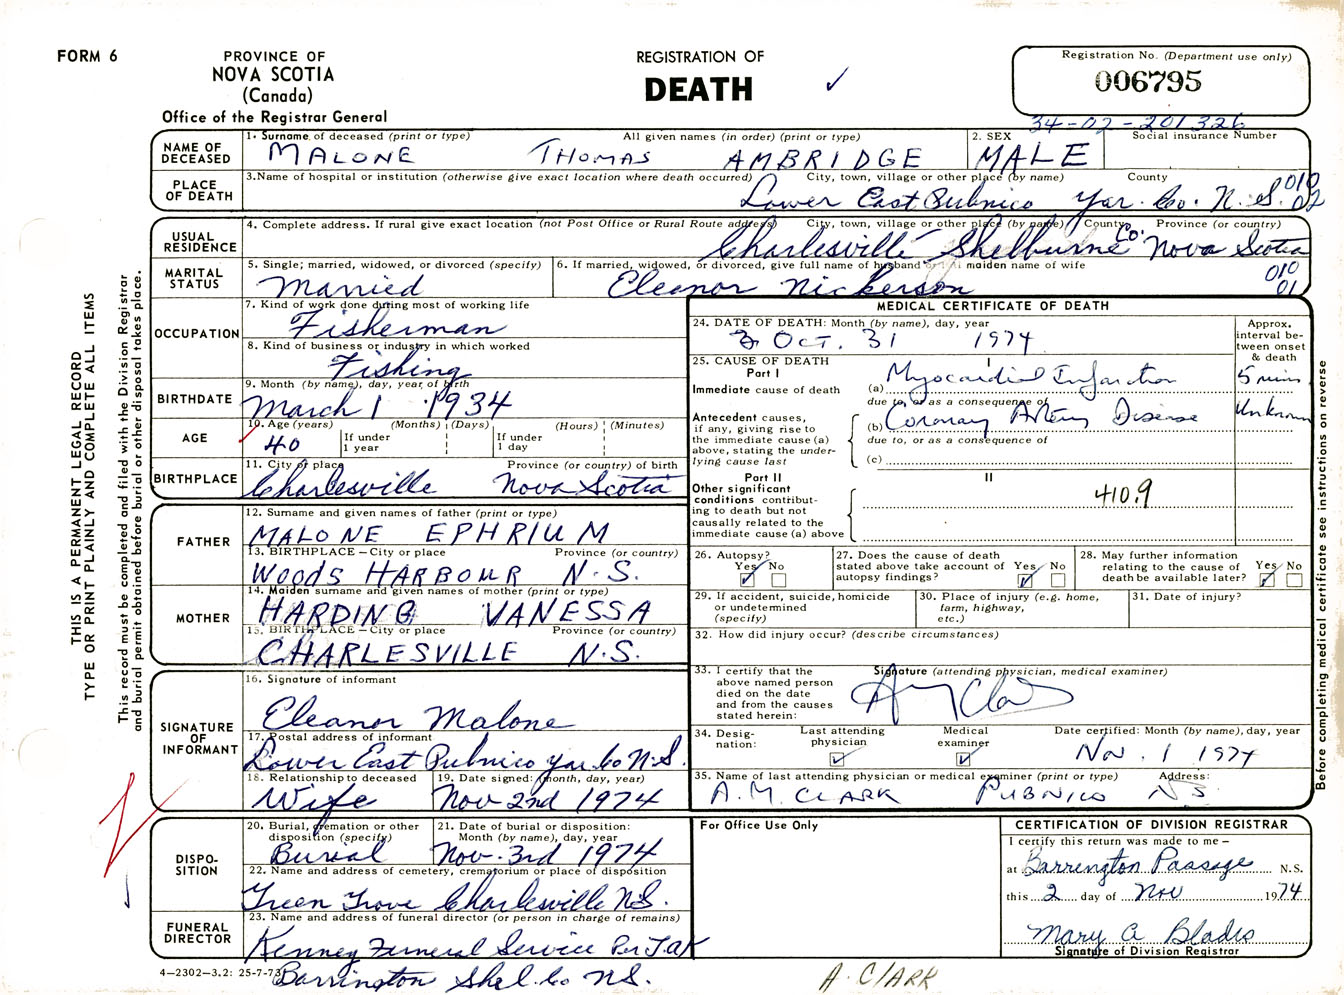 FORM 6
PROVINCE OF
NOVA SCOTIA
(Canada)
Office of the Registrar General
REGISTRATION OF
DEATH
Registration No. (Department use only)
006795
34-02-201326
THIS IS A PERMANENT LEGAL RECORD
TYPE OR PRINT PLAINLY AND COMPLETE ALL ITEMS
This record must be completed and filed with the Division Registrar
and burial permit obtained before burial or other disposal takes place.
NAME OF DECEASED
1. Surname of deceased (print or type) All given names (in order) (print or type)
MALONE THOMAS AMBRIDGE
2. SEX
MALE
Social insurance Number
PLACE OF DEATH
3. Name of hospital or institution (otherwise give exact location where death occurred) City, town, village or other place (by name) County
Lower East Pubnico Yar. Co. N.S.
010
02
USUAL RESIDENCE
4. Complete address. If rural give exact location (not Post Office or Rural Route address) City, town, village or other place (by name) County Province (or country)
Charlesville Shelburne Co. Nova Scotia
010
01
MARITAL STATUS
5. Single; married, widowed, or divorced (specify)
Married
6. If married, widowed, or divorced, give full name of husband or full maiden name of wife
Eleanor Nickerson
OCCUPATION
7. Kind of work done during most of working life
Fisherman
8. Kind of business or industry in which worked
Fishing
BIRTHDATE
9. Month (by name), day, year of birth
March 1 1934
AGE
10. Age (years) (Months) (Days) (Hours) (Minutes)
40 If under 1 year If under 1 day
BIRTHPLACE
11. City or place Province (or country) of birth
Charlesville Nova Scotia
FATHER
12. Surname and given names of father (print or type)
MALONE EPHRIUM
13. BIRTHPLACE – City or place Province (or country)
WOODS HARBOUR N.S.
MOTHER
14. Maiden surname and given names of mother (print or type)
HARDING VANESSA
15. BIRTHPLACE – City or place Province (or country)
CHARLESVILLE N.S.
SIGNATURE OF INFORMANT
16. Signature of informant
Eleanor Malone
17. Postal address of informant
Lower East Pubnico Yar. Co N.S.
18. Relationship to deceased
Wife
19. Date signed: (month, day, year)
Nov 2nd 1974
DISPO-
SITION
20. Burial, cremation or other
disposition (specify)
Burial
21. Date of burial or disposition:
Month (by name), day, year
Nov. 3rd 1974
22. Name and address of cemetery, crematorium or place of disposition
Green Grove Charlesville N.S.
FUNERAL DIRECTOR
23. Name and address of funeral director (or person in charge of remains)
Kenney Funeral Service Per J.A.K
Barrington Shel. Co NS.
4–2302–3.2: 25-7-73
MEDICAL CERTIFICATE OF DEATH
24. DATE OF DEATH: Month (by name), day, year
OCT. 31 1974
Approx.
interval be-
tween onset
& death
25. CAUSE OF DEATH
Part I
I
Immediate cause of death
(a) Myocardial Infarction 5 mins
due to, or as a consequence of
Antecedent causes,
if any, giving rise to
the immediate cause (a)
above, stating the under-
lying cause last
(b) Coronary Artery Disease Unknown
due to, or as a consequence of
(c)
Part II
II
Other significant
conditions contribut-
ing to death but not
causally related to the
immediate cause (a) above
410.9
26. Autopsy?
Yes No
27. Does the cause of death
stated above take account of
autopsy findings?
Yes No
28. May further information
relating to the cause of
death be available later?
Yes No
29. If accident, suicide, homicide
or undetermined
(specify)
30. Place of injury (e.g. home,
farm, highway,
etc.)
31. Date of injury?
32. How did injury occur? (describe circumstances)
33. I certify that the
above named person
died on the date
and from the causes
stated herein:
Signature (attending physician, medical examiner)
34. Desig-
nation:
Last attending
physician
Medical
examiner
Date certified: Month (by name), day, year
Nov. 1 1974
35. Name of last attending physician or medical examiner (print or type) Address:
A.M. CLARK PUBNICO NS
Before completing medical certificate see instructions on reverse
For Office Use Only
CERTIFICATION OF DIVISION REGISTRAR
I certify this return was made to me –
at Barrington Passage N.S.
this 2 day of Nov 1974
Mary A Blades
Signature of Division Registrar
A. CLARK